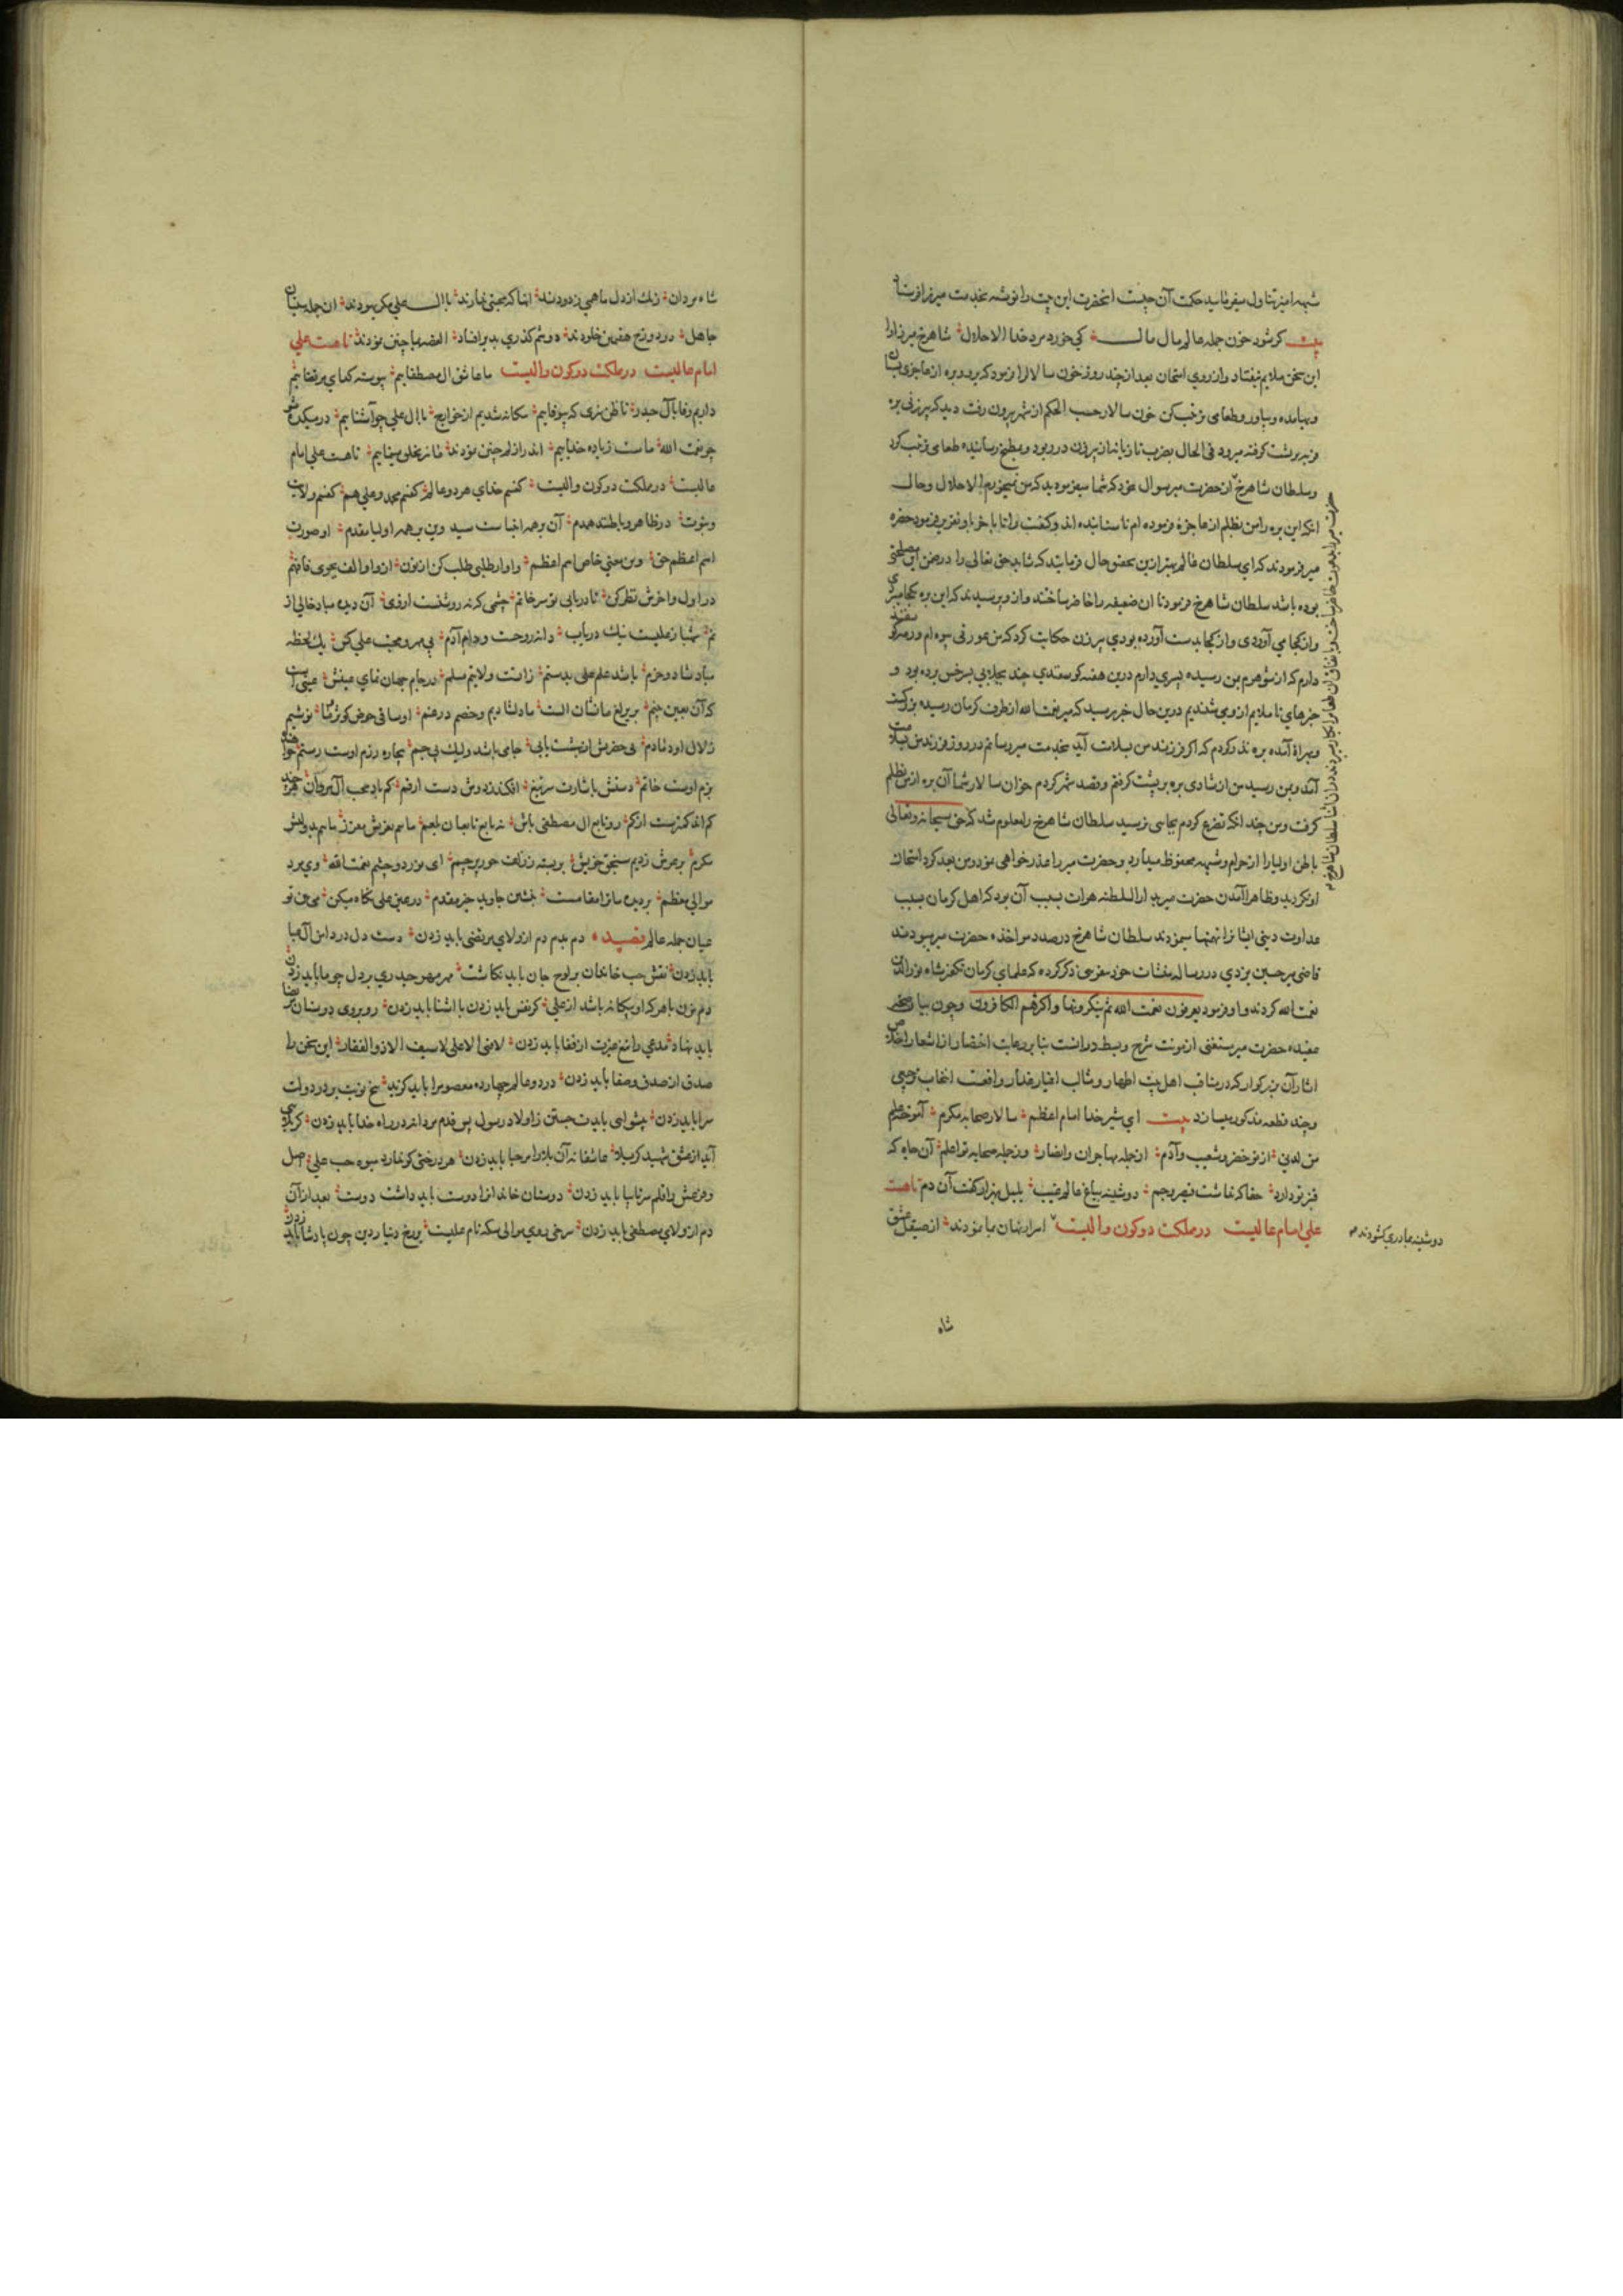 شبهه امیز تناول میفرمایید حکمت آن چیست انحضرت این بیت را نوشته بخدمت میرزا فرستاد
بیت کر شود خون جمله عالم مال مال کی خورد مرد خدا الا حلال شاهرخ میرزا را
این سخن ملایم نیفتاد و از روی امتحان بعد از چند روز خون سالار را فرمود که برو و بره از عاجزی بستان
و بها مده و بیاور و طعامی ترتیب کن خون سالار حسب الحکم از شهر بیرون رفت دید که پیرزنی بره
فربه بر پشت کرفته میرود فی الحال بضرب تازیانه از پیرزن در ربود و بمطبخ رسانیده طعامی ترتیب کرد
و سلطان شاهرخ از حضرت میر سوال نمود که شما میفرمودید که من نمیخورم الا حلال و حال
انکه این بره را من بظلم از عاجزه فرموده ام تا ستانیده اند و کیفیت را تا باخر باو تقریر فرمود حضرت
میر فرمودند که ای سلطان عالم بهتر ازین تحقیق حال فرمایید که شاید حق تعالی را در ضمن این مصلحتی
بوده باشد سلطان شاهرخ فرمود تا ان ضعیفه را حاضر ساختند و از وی پرسیدند که این بره بکجا میبری
و از کجا می آوردی و از کجا بدست آورده بودی پیرزن حکایت کرد که من عورتی بیوه ام و رمه کوسفند
دارم که از شوهرم بمن رسیده پسری دارم درین هفته کوسفندی چند بجلابی بسرخس برده بود و
خبرهای نا ملایم از وی شنیدیم درین حال خبر رسید که میر نعمت الله از طرف کرمان رسیده بزرکست
و بهراة آمده بره نذر کردم که اکر فرزند من بسلامت آید بخدمت میر رسانم در روز فرزند من بسلامت
آمد و بمن رسید من از شادی بره بر پشت کرفتم و قصد شهر کردم خوان سالار شما آن بره از من بظلم
کرفت و من چند انکه تضرع کردم بجایی نرسید سلطان شاهرخ را معلوم شد که حق سبحانه و تعالی
باطن اولیا را از حرام و شبهه محفوظ میدارد و حضرت میر را عذر خواهی نمود و من بعد کرد امتحان
او نکردید و ظاهرا آمدن حضرت میر بدار السلطنه هرات بسبب آن بود که اهل کرمان بسبب
عداوت دینی ایشانرا تهمتها میزدند سلطان شاهرخ در صدد مواخذه حضرت میر بودند
قاضی میر حسین یزدی در رساله منشات خود سفرجی ذکر کرده که علمای کرمان تکفیر شاه نور الدین
نعمت الله کردند و او فرمود یعرفون نعمت الله ثم ینکرونها و اکثرهم الکافرون و چون بیان
عقیده حضرت میر مستغنی از مونت شرح و بسط دانست بنا بر رعایت اختصار از اشعار
اثار آن بزرکوار که در مناقب اهل بیت اطهار و مثالب اغیار غدار واقعست انتخاب
و چند قطعه مذکور میسازد بیت ای شیر خدا امام اعظم سالار صحابه مکرم آموخته علم
من لدنی از تو خضر و شعیب و آدم از جمله مهاجران و انصار و ز جمله صحابه تو اعلم آن جاه که
قنبر تو دارد حقا که نداشت قیصر و جم دوشینه بباغ عالم غیب بلبل بهزار کفت آن دم تا هست
علی امام عالیست در مملکت دو کون والیست اسرار نهان بما نمودند از صیقل عشق
دوشینه بما دری کشودند
شاه
شاه مردان زنک از دل ما همی زدودند انها که محبتی ندارند با ال علی مکر یهودند ان جمله منافقان
جاهل در دوزخ هفتمین خلودند دوشم کذری بدیر افتاد القصه بما چنین نمودند تا هست علی
امام عالیست در مملکت دو کون والیست ما عاشق ال مصطفایم پیوسته کدای مرتضایم
داریم وفا بآل حیدر تا ظن نبری که بیوفایم بیکانه شدیم از خوارج با ال علی چو آشنایم در میکده
چو نعمت الله ما مست زباده خدایم اندر ازلم چنین نمودند تا نزد علی بینایم تا هست علی امام
عالیست در مملکت دو کون والیست کفتم خدای هر دو عالم کفتم محمد و علی هم کفتم ولایت
و نبوت در ظاهر و باطنند همدم آن بر همه انبیاست سید وین بر همه اولیا مقدم او صورت
اسم اعظم حق وین معنی خاص اسم اعظم واو ار طلبی طلب کن از نون از واو الف بجوی فافهم
در اول و آخرش نظر کن تا دریابی تو سر خاتم چشمی که نه روشنست ازوی آن دیده مباد خالی از
نم شهباز علیست نیک دریاب دانه روحست و دام آدم بی مهر و محبت علی کس یک لحظه
مباد شاد و خرم باشد علم علی بدستم زانست ولایتم مسلم در جام جهان نمای عینش عینی است
که آن بعین بینم بر یرلیغ ما نشان الست ما دلشادیم و خصم درغم او ساقی حوض کوثر ما نوشیم
زلال او دمادم بی حضرتش ار بهشت یابی جامی باشد ولیک بی جم بیچاره رزم اوست رستم
بزم اوست خاتم دستش باشارت سر تیغ افکنده دوش دست ارقم
مکرم بر عرش زدیم سنجق خویش بر بسته ز زلف حور پرچم ای نور دو چشم نعمت الله وی مرد
موالی معظم بر دیده ما ترا مقامست بنشین جاوید خیر مقدم در عین علی نکاه میکن می بین تو
عیان جمله عالم قصیده دم بدم دم از ولای مرتضی باید زدن دست دل در دامن آل عبا
باید زدن نقش حب خاندان بر لوح جان باید نکاشت مهر مهر حیدری بر دل چو ما باید زدن
دم مزن با هر که او بیکانه باشد از علی کر نفس باید زدن با اشنا باید زدن رو بروی دوستان مرتضا
باید نهاد مدعی را تیغ غیرت از قفا باید زدن لا فتی الا علی لا سیف الا ذوالفقار این سخن را
صدق از صدق و صفا باید زدن در دو عالم چهارده معصوم را باید کزید پنج نوبت بر در دولت
سرا باید زدن پیشوایی بایدت جستن ز اولاد رسول پس قدم مردانه در راه خدا باید زدن کر بلایی
آید از عشق شهید کربلا عاشقانه آن بلا را مرحبا باید زدن هر درختی کو ندارد میوه حب علی اصل
و فرعش را قلم سر تا بپا باید زدن دوستان خاندانرا دوست باید داشت دوست بعد از آن
دم از ولای مصطفی باید زدن سرخی روی موالی سکه نام علیست بر رخ دنیا و دین چون پادشا باید زدن